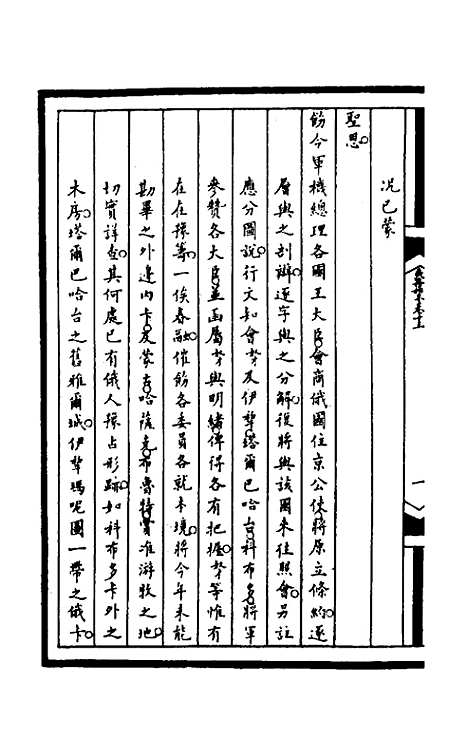 況已蒙
聖恩。
飭令軍機總理各國王大臣會商俄國住京公使。將原立條約。逐
層與之剖辦。逐字與之分解。復將與該國來往照會。另註
應分圖説。行文知會。才及伊犂。塔爾巴哈台。科布多。將軍
參贊各大臣。並函屬才與明緒。俾得各有把握。才等惟有
在在豫籌。一俟春融。催飭各委員各就本境。將今年未能
勘畢之外邊内卡。及蒙古。哈薩克。布魯特。實准游牧之地。
切實詳查。其何處已有俄人豫占形跡。如科布多卡外之
木房。塔爾巴哈台之舊雅爾城。伊犂瑪呢圖一帶之俄卡。